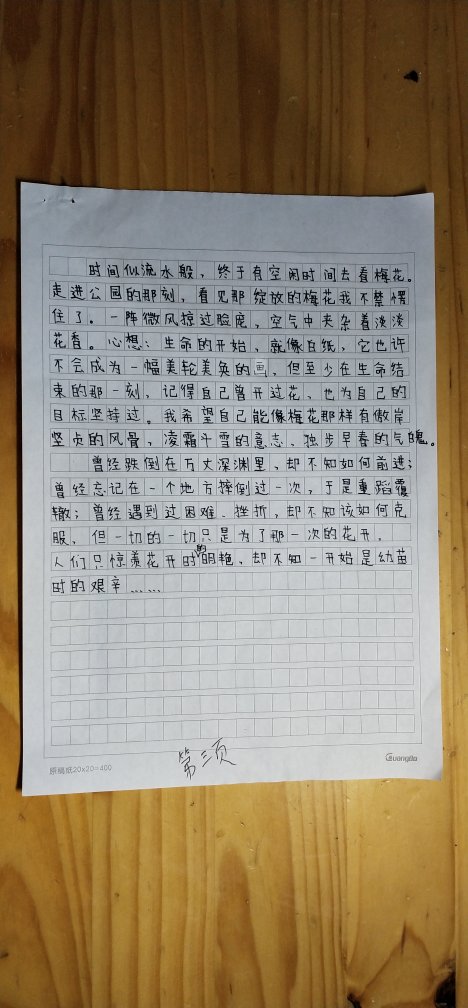 时间似流水般，终于有空闲时间去看梅花。
走进公园的那刻，看见那绽放的梅花我不禁愣
住了。一阵微风掠过脸庞，空气中夹杂着淡淡
花香。心想：生命的开始，就像白纸，它也许
不会成为一幅美轮美奂的画，但至少在生命结
束的那一刻，记得自己曾开过花，也为自己的
目标坚持过。我希望自己能像梅花那样有傲岸
坚贞的风骨，凌霜斗雪的意志，独步早春的气魄。
曾经跌倒在万丈深渊里，却不知如何前进；
曾经忘记在一个地方摔倒过一次，于是重蹈覆
辙；曾经遇到过困难、挫折，却不知该如何克
服，但一切的一切只是为了那一次的花开。
人们只惊羡花开时的明艳，却不知一开始是幼苗
时的艰辛……
第三页
原稿纸20x20=400
Guangbo